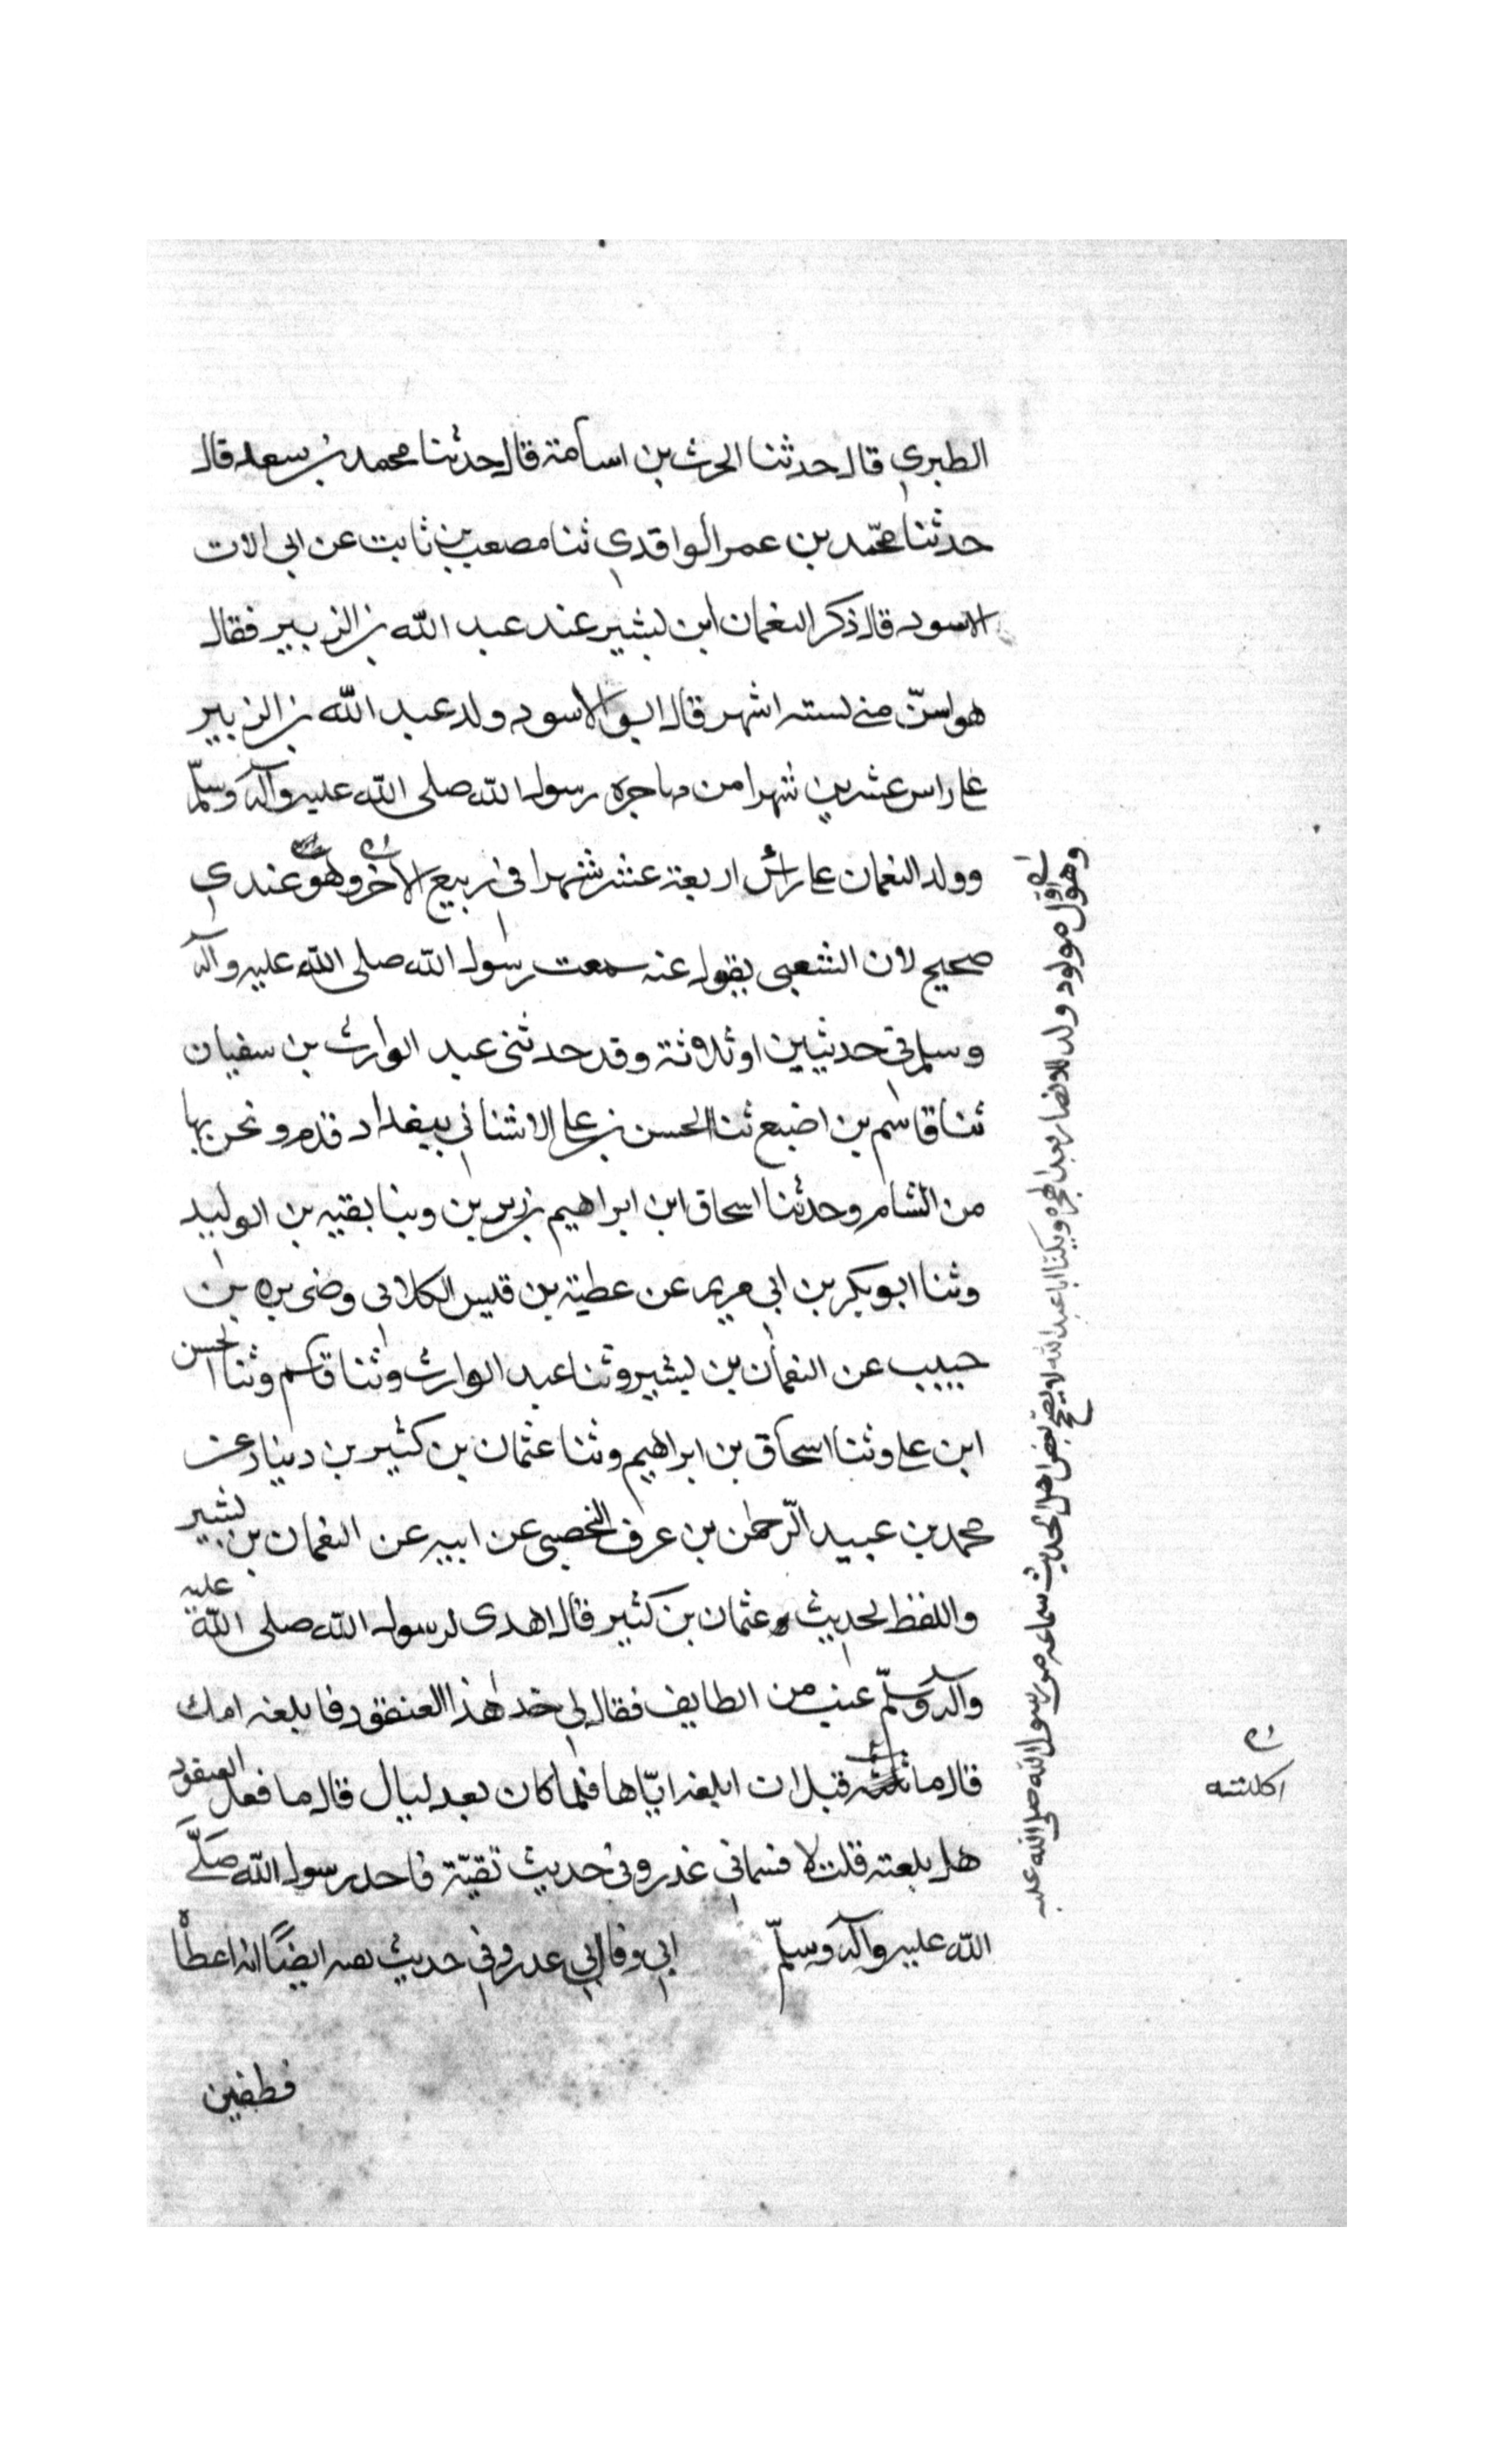 الطبري قال حدثنا الحرث بن اسامة قال حدثنا محمد بن سعد قال
حدثنا محمد بن عمر الواقدي ثنا مصعب بن ثابت عن ابي الات
الاسود قال ذكر النعمان ابن بشير عند عبد الله بن الزبير فقال
هو اسنّ مني بسته اشهر قال ابو الاسود ولد عبد الله بن الزبير
على راس عشرين شهرا من مهاجره رسول الله صلى الله عليه وآله وسلّم
وولد النعمان على رأس اربعة عشر شهرا في ربيع الآخر وهو عندي
صحيح لان الشعبي يقول عنه سمعت رسول الله صلى الله عليه وآله
وسلم في حديثين او ثلاثة وقد حدثني عبد الوارث بن سفيان
ثنا قاسم بن اضبع ثنا الحسن بن على الاشناني ببغداد قدم ونحن بها
من الشام وحدثنا اسحاق ابن ابراهيم بن بقيه بن الوليد
وثنا ابو بكر بن ابي مريم عن عطية بن قيس الكلابي وضمره بن
حبيب عن النعمان بن بشير وثنا عبد الوارث وثنا قاسم وثنا الحسن
ابن على وثنا اسحاق بن ابراهيم وثنا عثمان بن كثير بن دينار عن
محمد بن عبيد الرّحمن بن عرف عن ابيه عن النعمان بن بشير
واللفظ لحديث عثمان بن كثير قال اهدى لرسول الله صلى الله عليه
وآله وسلّم عنب من الطايف فقال لي خذ هذا العنقود فابلغه امك
قال قبل ان ابلغه ايّاها فلما كان بعد ليال قال ما فعل العنقود
هل بلغته قلت لا فسماني غدر وفي حديث تقيّة فاخد رسول الله صَلَّى
الله عليه وآله وسلّم ابي وقال لي عدر وفي حديث ايضًا انه اعطا
فطفين
وهو اول مولود ولد للانصار بعد الهجره ويكنا ابا عبد الله لا يصحّح بعض اهل الحديث سماعه من رسول الله صلى الله عليه
اكلته